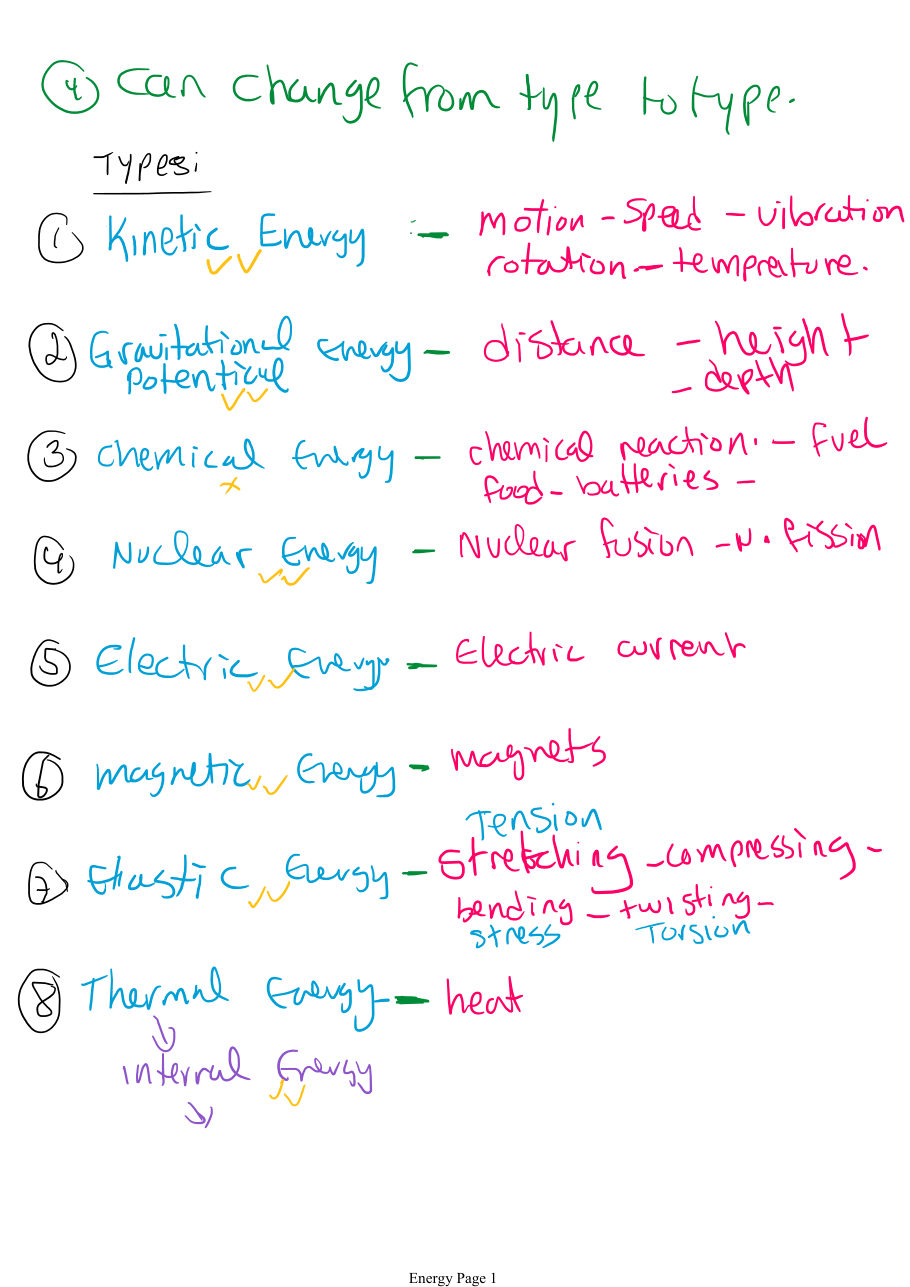 ④ Can change from type to type.
Types:
① Kinetic Energy - motion - Speed - vibration
rotation - temprature.
② Gravitational Energy - distance - height
Potential - depth
③ Chemical Energy - chemical reaction. - Fuel
food - batteries -
④ Nuclear Energy - Nuclear fusion - N. fission
⑤ Electric Energy - Electric current
⑥ magnetic Energy - magnets
Tension
⑦ Elastic Energy - Stretching - compressing -
bending - twisting -
stress Torsion
⑧ Thermal Energy - heat
internal Energy
Energy Page 1